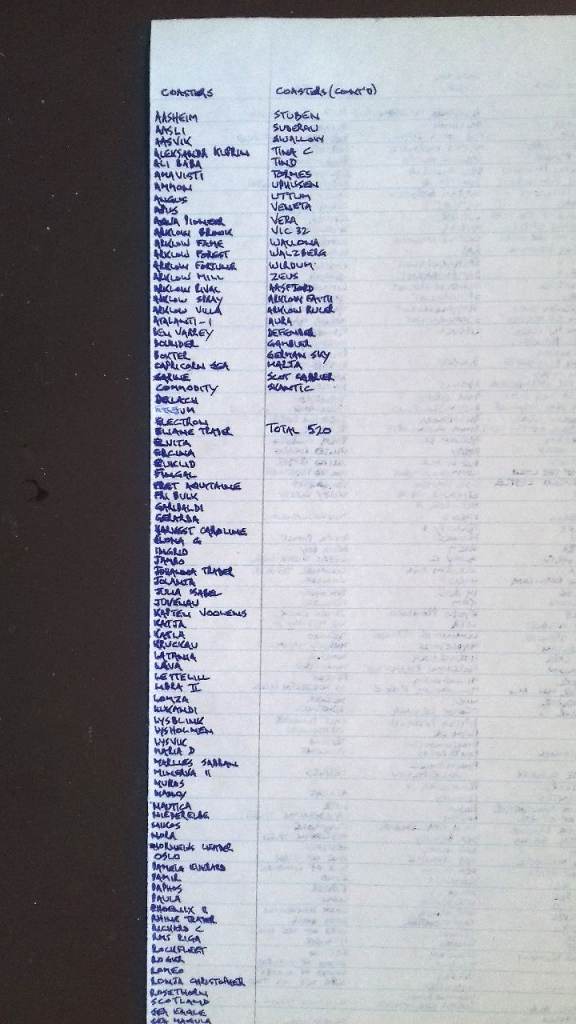 COASTERS
AASHEIM
AASLI
AASVIK
ALEKSANDR KUPRIN
ALI BABA
AMAVISTI
AMMON
ANGUS
APUS
AQUA PIONEER
ARKLOW BROOK
ARKLOW FAME
ARKLOW FOREST
ARKLOW FORTUNE
ARKLOW MILL
ARKLOW RIVAL
ARKLOW SPRAY
ARKLOW VILLA
ATALANTI-1
BEN VARREY
BOUNDER
BOXTER
CAPRICORN SEA
CARINE
COMMODITY
DERLACH
ELECTRON
ELIANE TRADER
ELVITA
ERCINA
EUKLID
FINGAL
FRET AQUITAINE
FRI BULK
GARIBALDI
GERARDA
HARVEST CAROLINE
ILONA G
INGRID
JAMBO
JOHANNA TRADER
JOLANTA
JULIA ISABEL
JUVENAU
KAPTEN VOOLENS
KATJA
KATLA
KRUCKAU
LATANIA
LAVA
LETTELILL
LIBRA II
LOMZA
LUXANDI
LYSBLINK
LYSHOLMEN
LYSVIK
MARIA D
MARLIES SABBAN
MINERVA II
MUROS
NAUTICA
NIEDERELBE
NIKOS
NORA
NORNEWS LEADER
OSLO
PAMELA EVERARD
PAMIR
PAPHOS
PAULA
PHOENIX B
RHINE TRADER
RICHARD C
RMS RIGA
ROCKFLEET
ROGER
ROMEO
RONJA CHRISTOPHER
ROSETHORN
SCOTLAND
SEA EAGLE
SEA MAGULA
COASTERS (CONT'D)
STUBEN
SUDERAU
SWALLOW
TINA C
TIND
TORMES
UPHUSEN
UTTUM
VENETA
VERA
VIC 32
WALLONA
WALZBERG
WIRDUM
ZEUS
AASFJORD
ARKLOW FAITH
ARKLOW RULER
AURA
DEFENDER
GAMBLER
GERMAN SKY
MARJA
SCOT CARRIER
SKANTIC
TOTAL 520